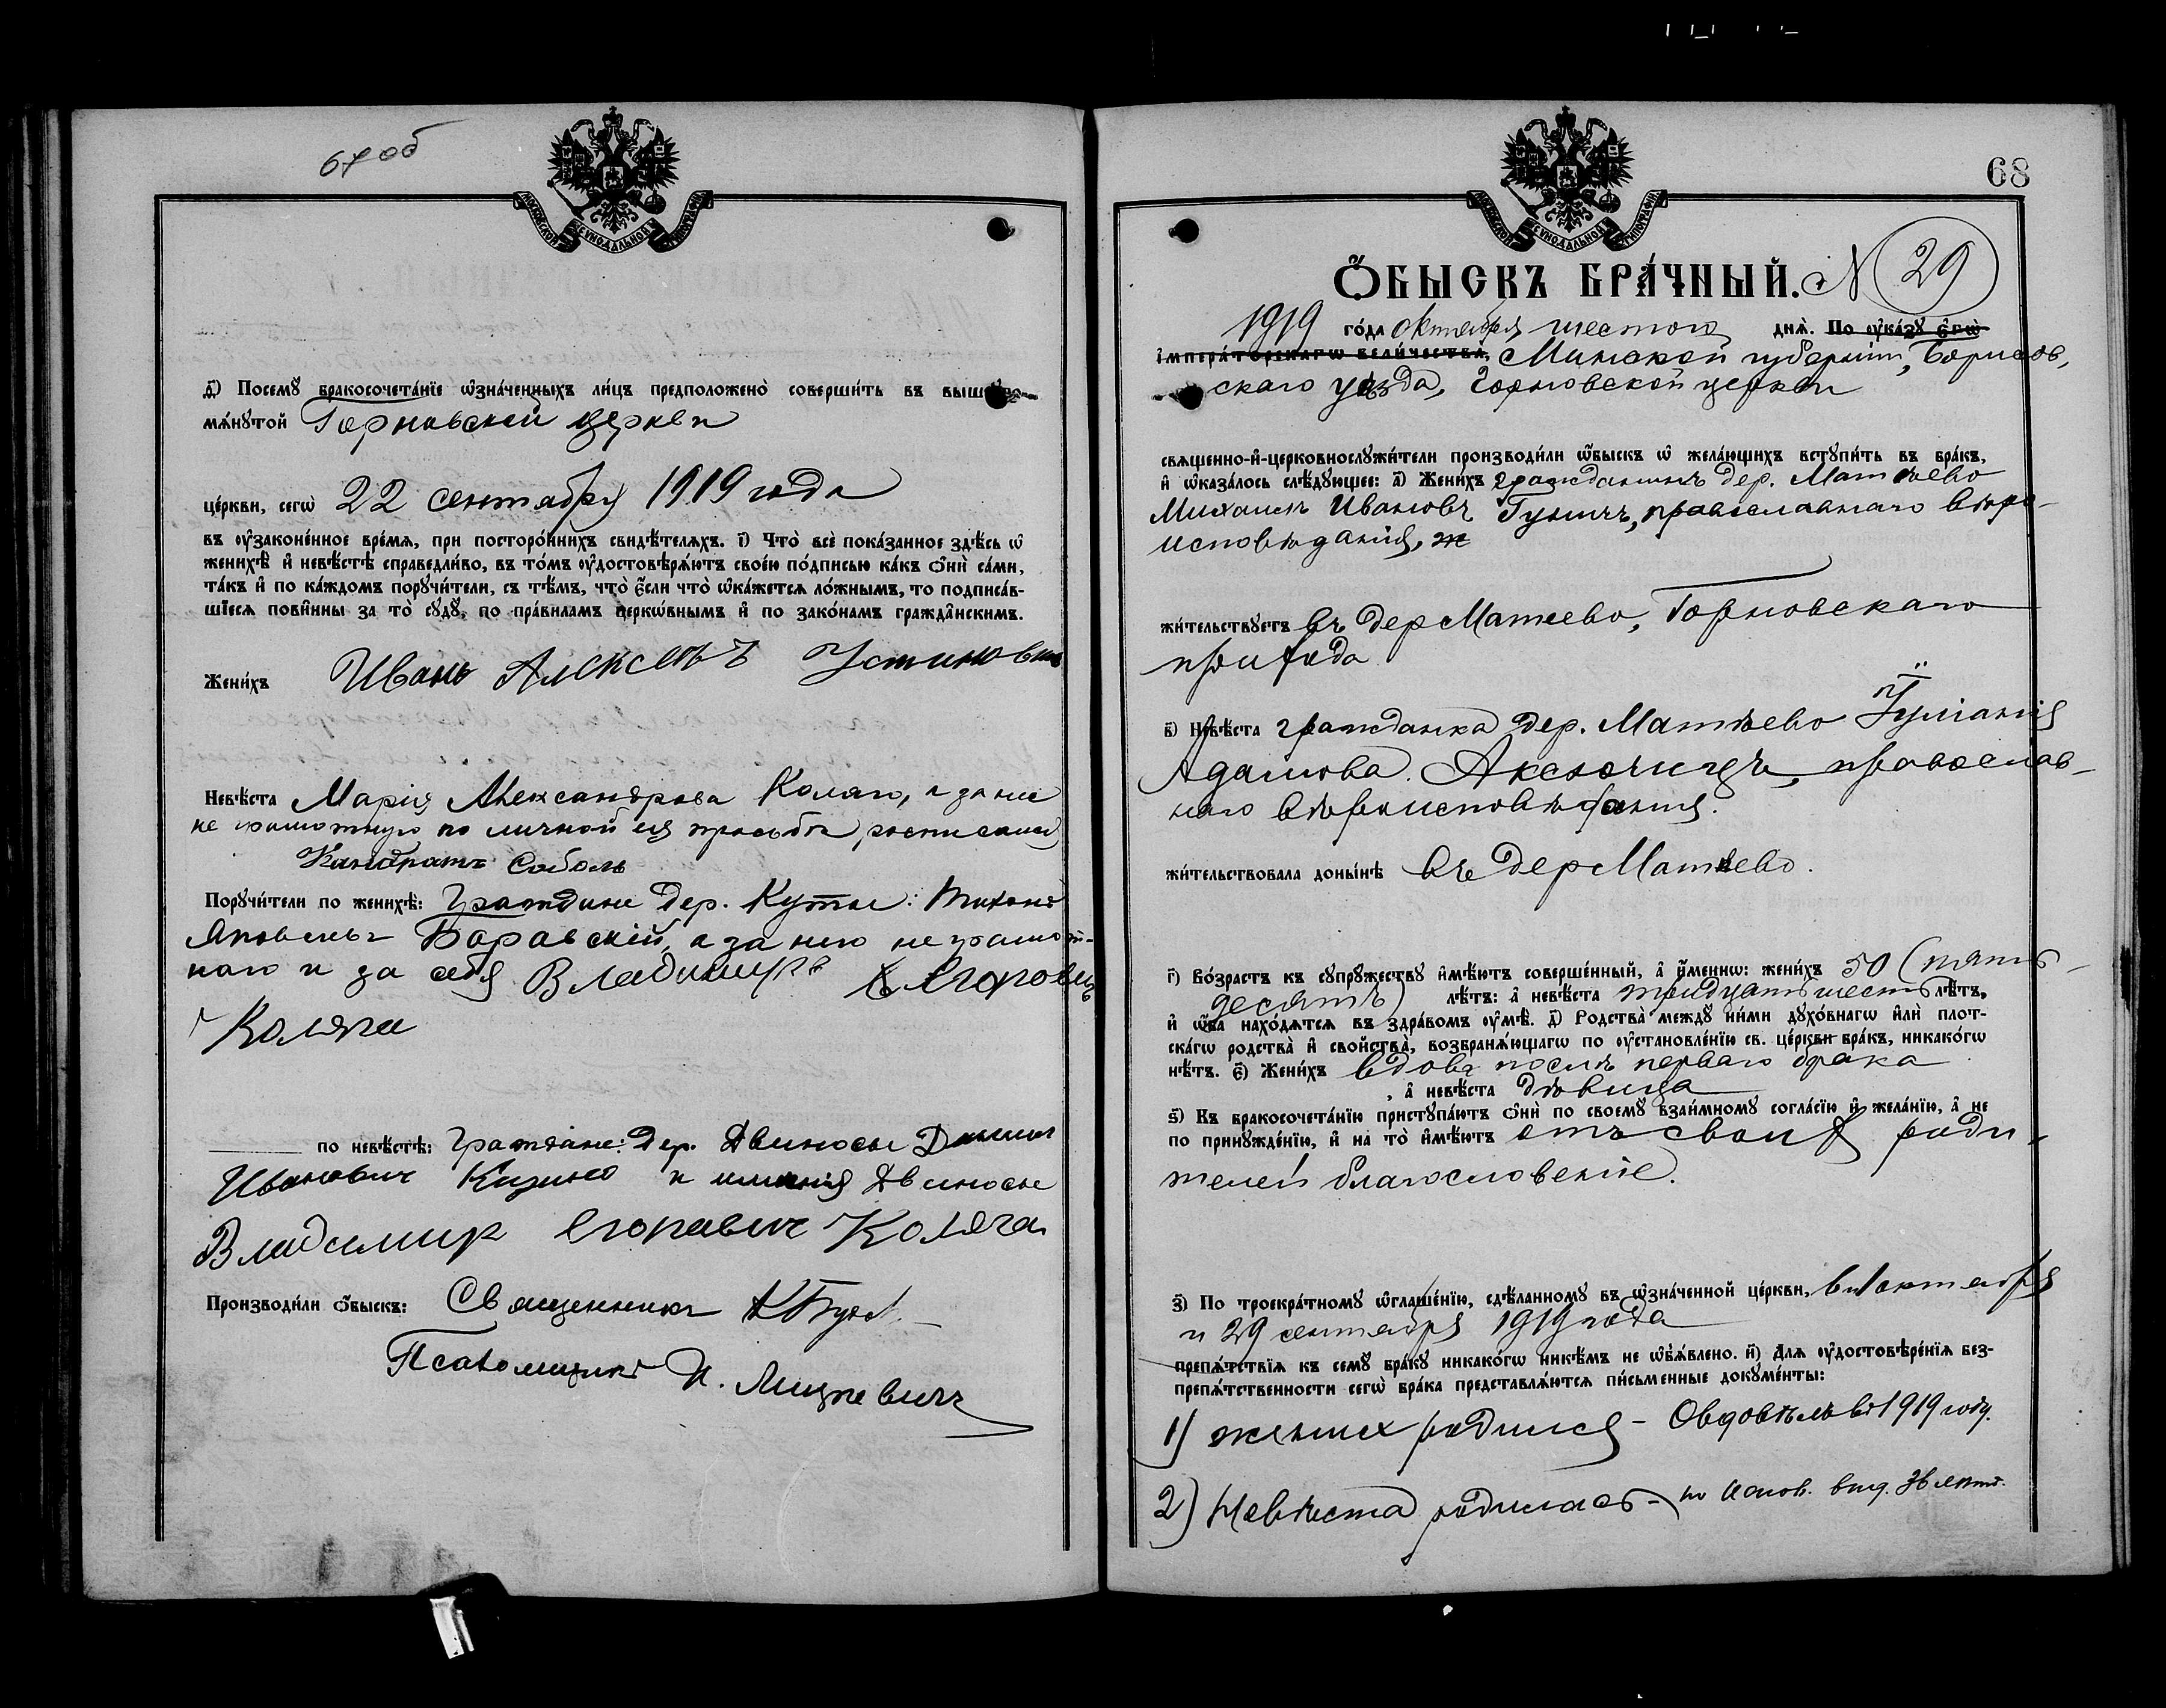 67об
МОСКОВСКОЙ СѴНОДАЛЬНОЙ ТИПОГРАФІИ
д҃) Посемꙋ бракосочета́нїе ѡ҆зна́ченныхъ ли́цъ предположено̀ соверши́ть въ выше
мѧ́нꙋтой Горновской церкви
це́ркви, сегѡ̀ 22 сентября 1919 года
въ ᲂу҆зако́не́нное вре́мѧ, при посторо́ннихъ свидѣ́телѧхъ. і҃) Что̀ всѐ пока́занное здѣ́сь ѡ҆
женихѣ̀ и҆ невѣ́стѣ справедли́во, въ то́мъ ᲂу҆достовѣрѧ́ютъ свое́ю по́дписью ка́къ ѻ҆нѝ са́ми,
та́къ и҆ по ка́ждомъ порꙋчи́тели, съ тѣ́мъ, что̀ є҆́сли что̀ ѡ҆ка́жетсѧ ло́жнымъ, то подписа́в-
шїесѧ пови́нны за то̀ сꙋдꙋ̀, по пра́виламъ церко́внымъ и҆ по зако́намъ гражда́нскимъ.
Жени́хъ Иванъ Алексѣевъ Устиновичъ
Невѣ́ста Марія Александрова Коляго, а за нее
не грамотную по личной ея просьбѣ росписался
Кандратъ Соболь
Порꙋчи́тели по женихѣ̀: Граждане дер. Куты: Тихонъ
Яковлевъ Боровскій, а за него не грамот-
наго и за себя Владимиръ Егоровъ
Коляга
по невѣ́стѣ: Граждане: дер. Двиносы
Иванович и имѣнія Двиносы
Владимир Егоравич Коляга
Производи́ли ѻ҆́быскъ: Священникъ
Псаломщикъ И. Мицкевичъ
68
МОСКОВСКОЙ СѴНОДАЛЬНОЙ ТИПОГРАФІИ
Ѻ҆́БЫСКЪ БРА́ЧНЫЙ. N 29
1919 го́да октября шестого днѧ̀. По ᲂу҆ка́зꙋ є҆гѡ̀
і҆мпера́торскагѡ вели́чества, Минской губерніи, Борисов,
скаго уѣзда, Горновской церкви
свѧще́нно-и҆-церковнослꙋжи́тели производи́ли ѻ҆́быскъ ѡ҆ жела́ющихъ вступи́ть въ бра́къ,
и҆ ѡ҆каза́лось слѣ́дꙋющее: а҃) Жени́хъ гражданинъ дер. Матѣево
Михаилъ Ивановъ Гуничъ, православнаго вѣро-
исповѣданія,
жи́тельствꙋетъ въ дер Матеево, Горновскаго
прихода
в҃) Невѣ́ста гражданка дер. Матѣево Іуліанія
Адамова Аксючицъ, православ-
наго вѣроисповѣданія.
жи́тельствовала доны́нѣ въ дер Матѣево.
г҃) Во́зрастъ къ сꙋпрꙋ́жествꙋ и҆мѣ́ютъ соверше́нный, а҆ и҆́меннѡ: жени́хъ 50 (пять-
десятъ) лѣ́тъ: а҆ невѣ́ста тридцать шесть лѣ́тъ,
и҆ ѻ҆́ба нахо́дѧтсѧ въ здра́вомъ ᲂу҆мѣ̀. д҃) Родства̀ междꙋ̀ ни́ми дꙋхо́внагѡ и҆лѝ плот-
ска́гѡ родства̀ и҆ свойства̀, возбранѧ́ющагѡ по ᲂу҆становле́нїю св. це́ркви бра́къ, никако́гѡ
нѣ́тъ. є҃) Жени́хъ вдовъ послѣ перваго брака
, а҆ невѣ́ста дѣвица
ѕ҃) Къ бракосочета́нїю пристꙋпа́ютъ ѻ҆нѝ по своемꙋ̀ взаи́мномꙋ согла́сїю и҆ жела́нїю, а҆ не
по принꙋжде́нїю, и҆ на то̀ и҆мѣ́ютъ отъ своихъ роди-
телей благословеніе.
з҃) По троекра́тномꙋ ѡ҆глаше́нїю, сдѣ́ланномꙋ въ ѡ҆зна́ченной це́ркви, октября
и 29 сентября 1919 года
препѧ́тствїѧ къ семꙋ̀ бра́кꙋ никако́гѡ никѣ́мъ не ѡ҆б̾ѧ́влено. и҃) Длѧ ᲂу҆достовѣре́нїѧ без-
препѧ́тственности сегѡ̀ бра́ка представлѧ́ютсѧ пи́сьменные докꙋме́нты:
1) жених родился - Овдовѣлъ въ 1919 году.
2) Невѣста родилась - по испов. вѣд. 36 лѣтъ.